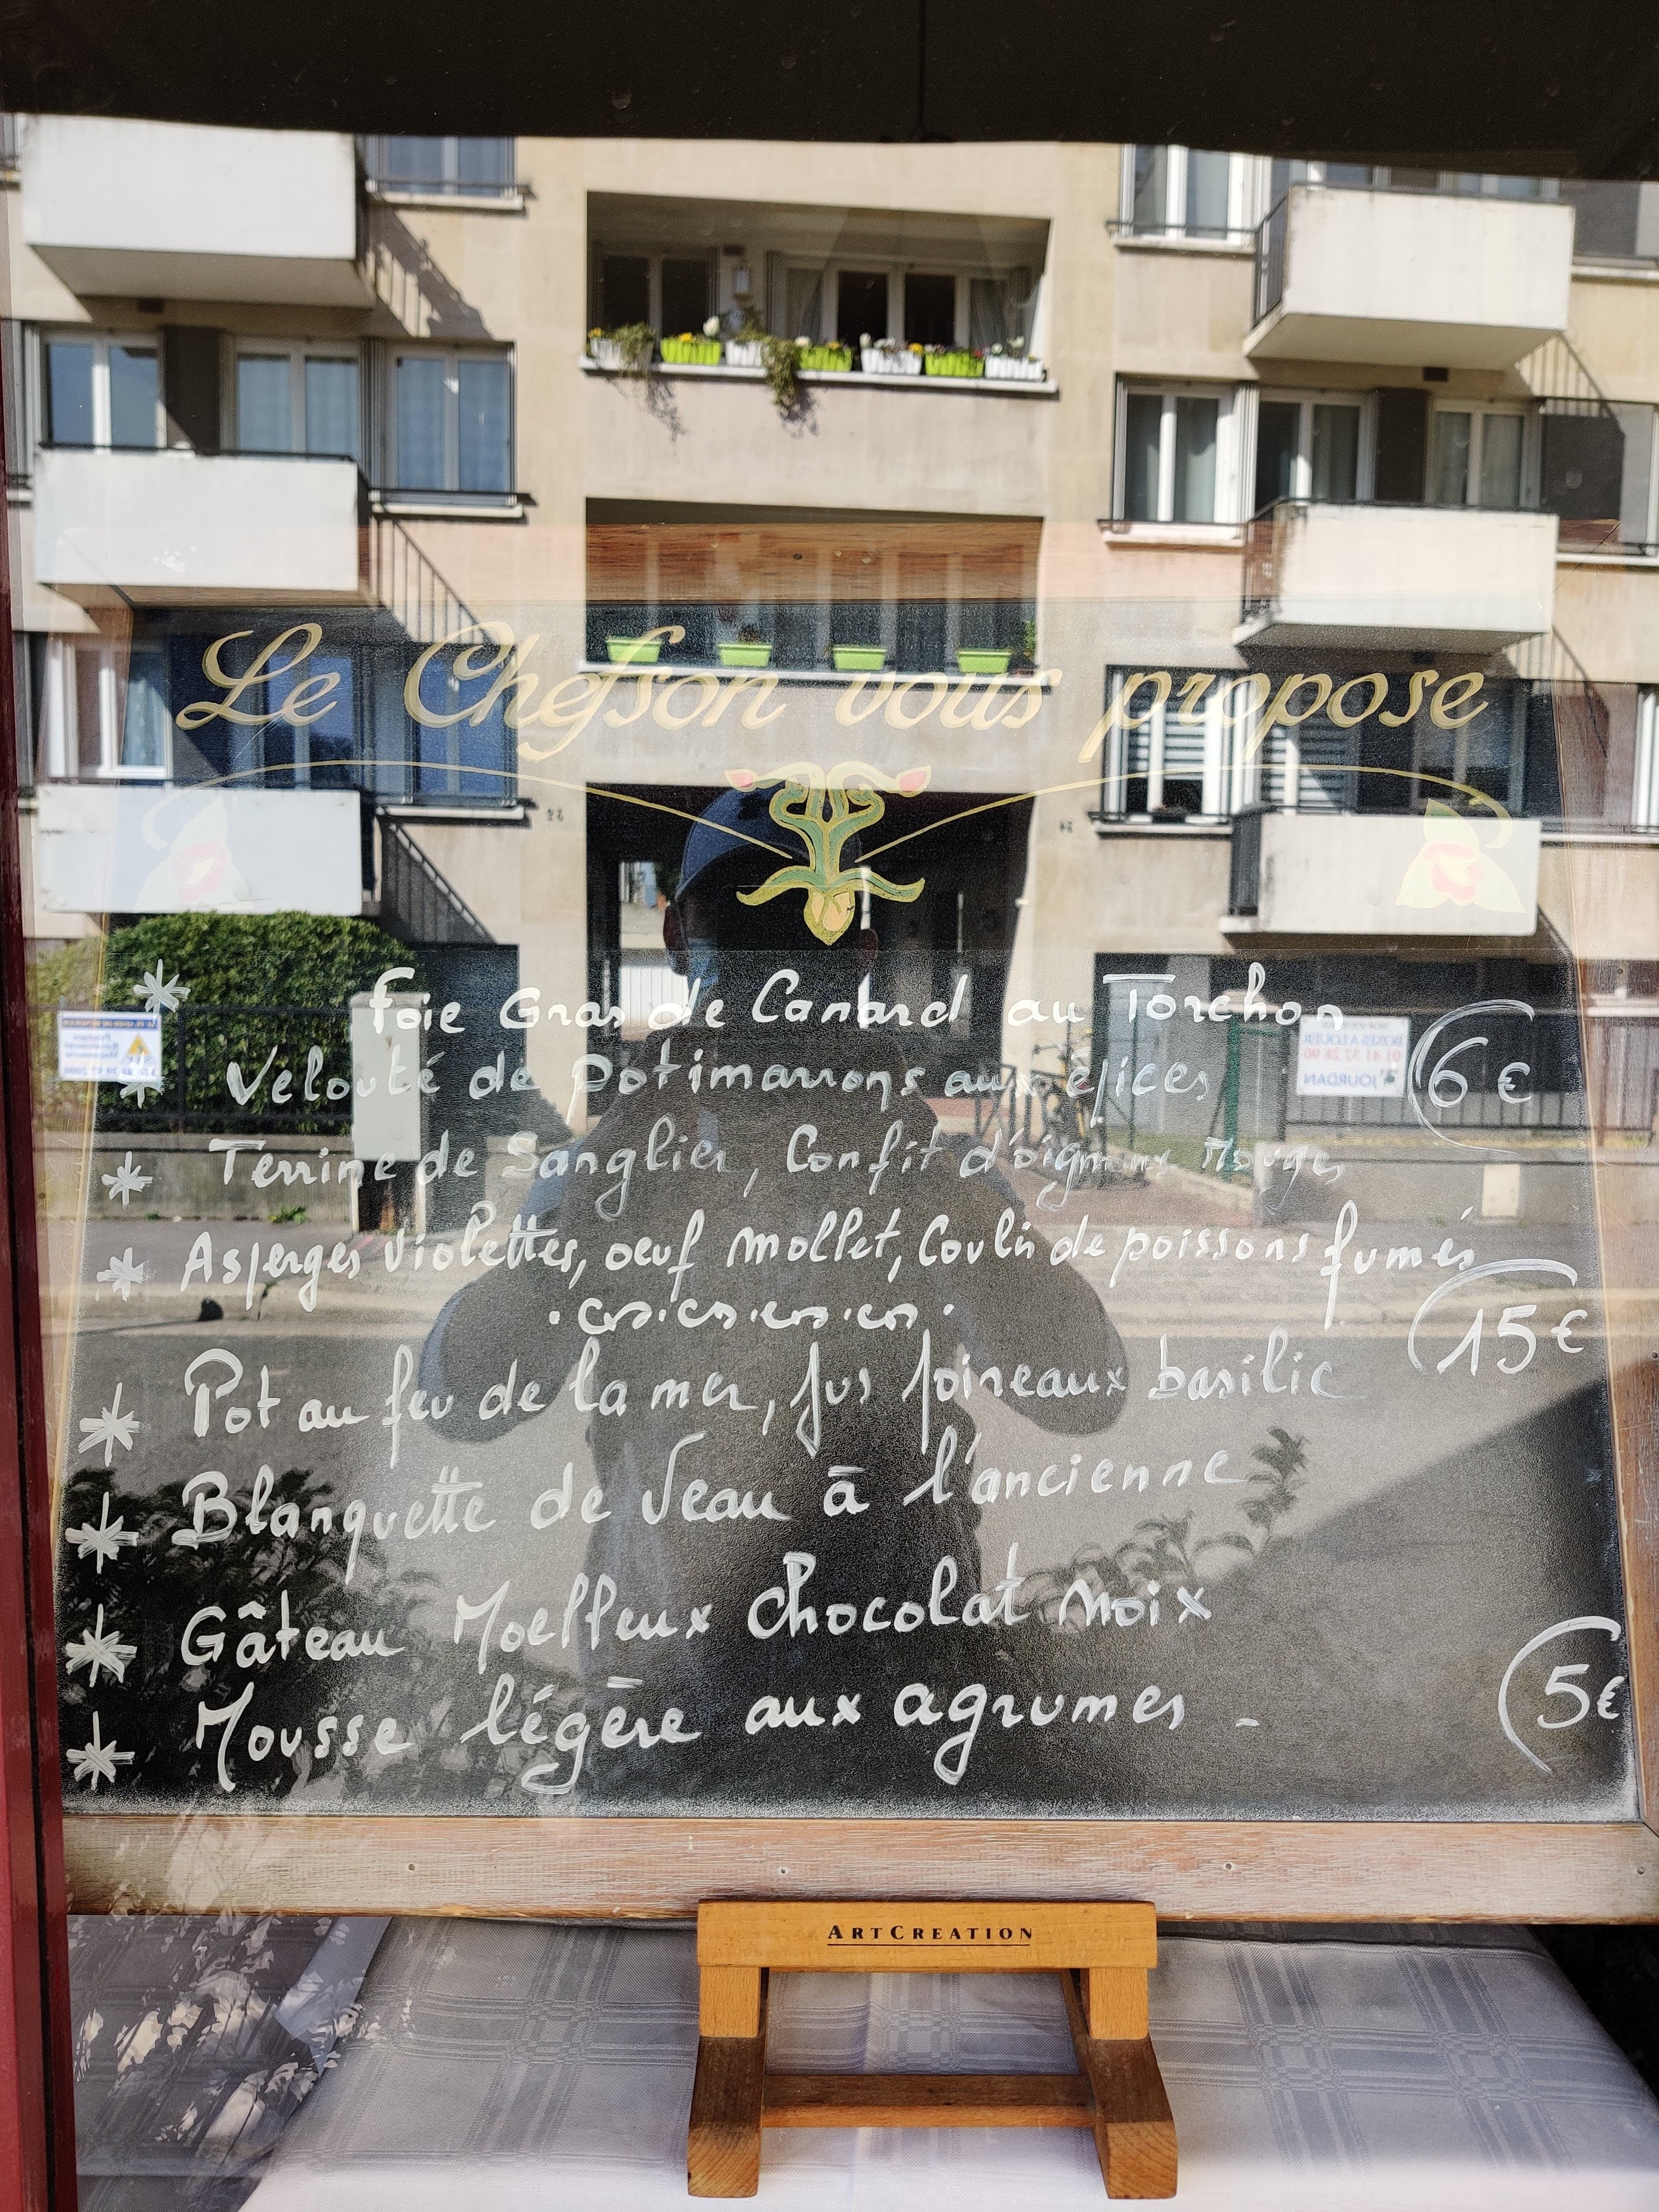 Le Chefson vous propose
* Foie Gras de Canard au Torchon
* Velouté de Potimarrons aux épices 6€
* Terrine de Sanglier, Confit d'oignons Rouges
* Asperges Violettes, oeuf Mollet, Coulis de poissons fumés
15€
* Pot au feu de la mer, jus poireaux basilic
* Blanquette de Veau à l'ancienne
* Gâteau Moelleux Chocolat Noix
* Mousse légère aux agrumes - 5€
ARTCREATION
BOXES A LOUER
01 41 32 28 90
JOURDAN